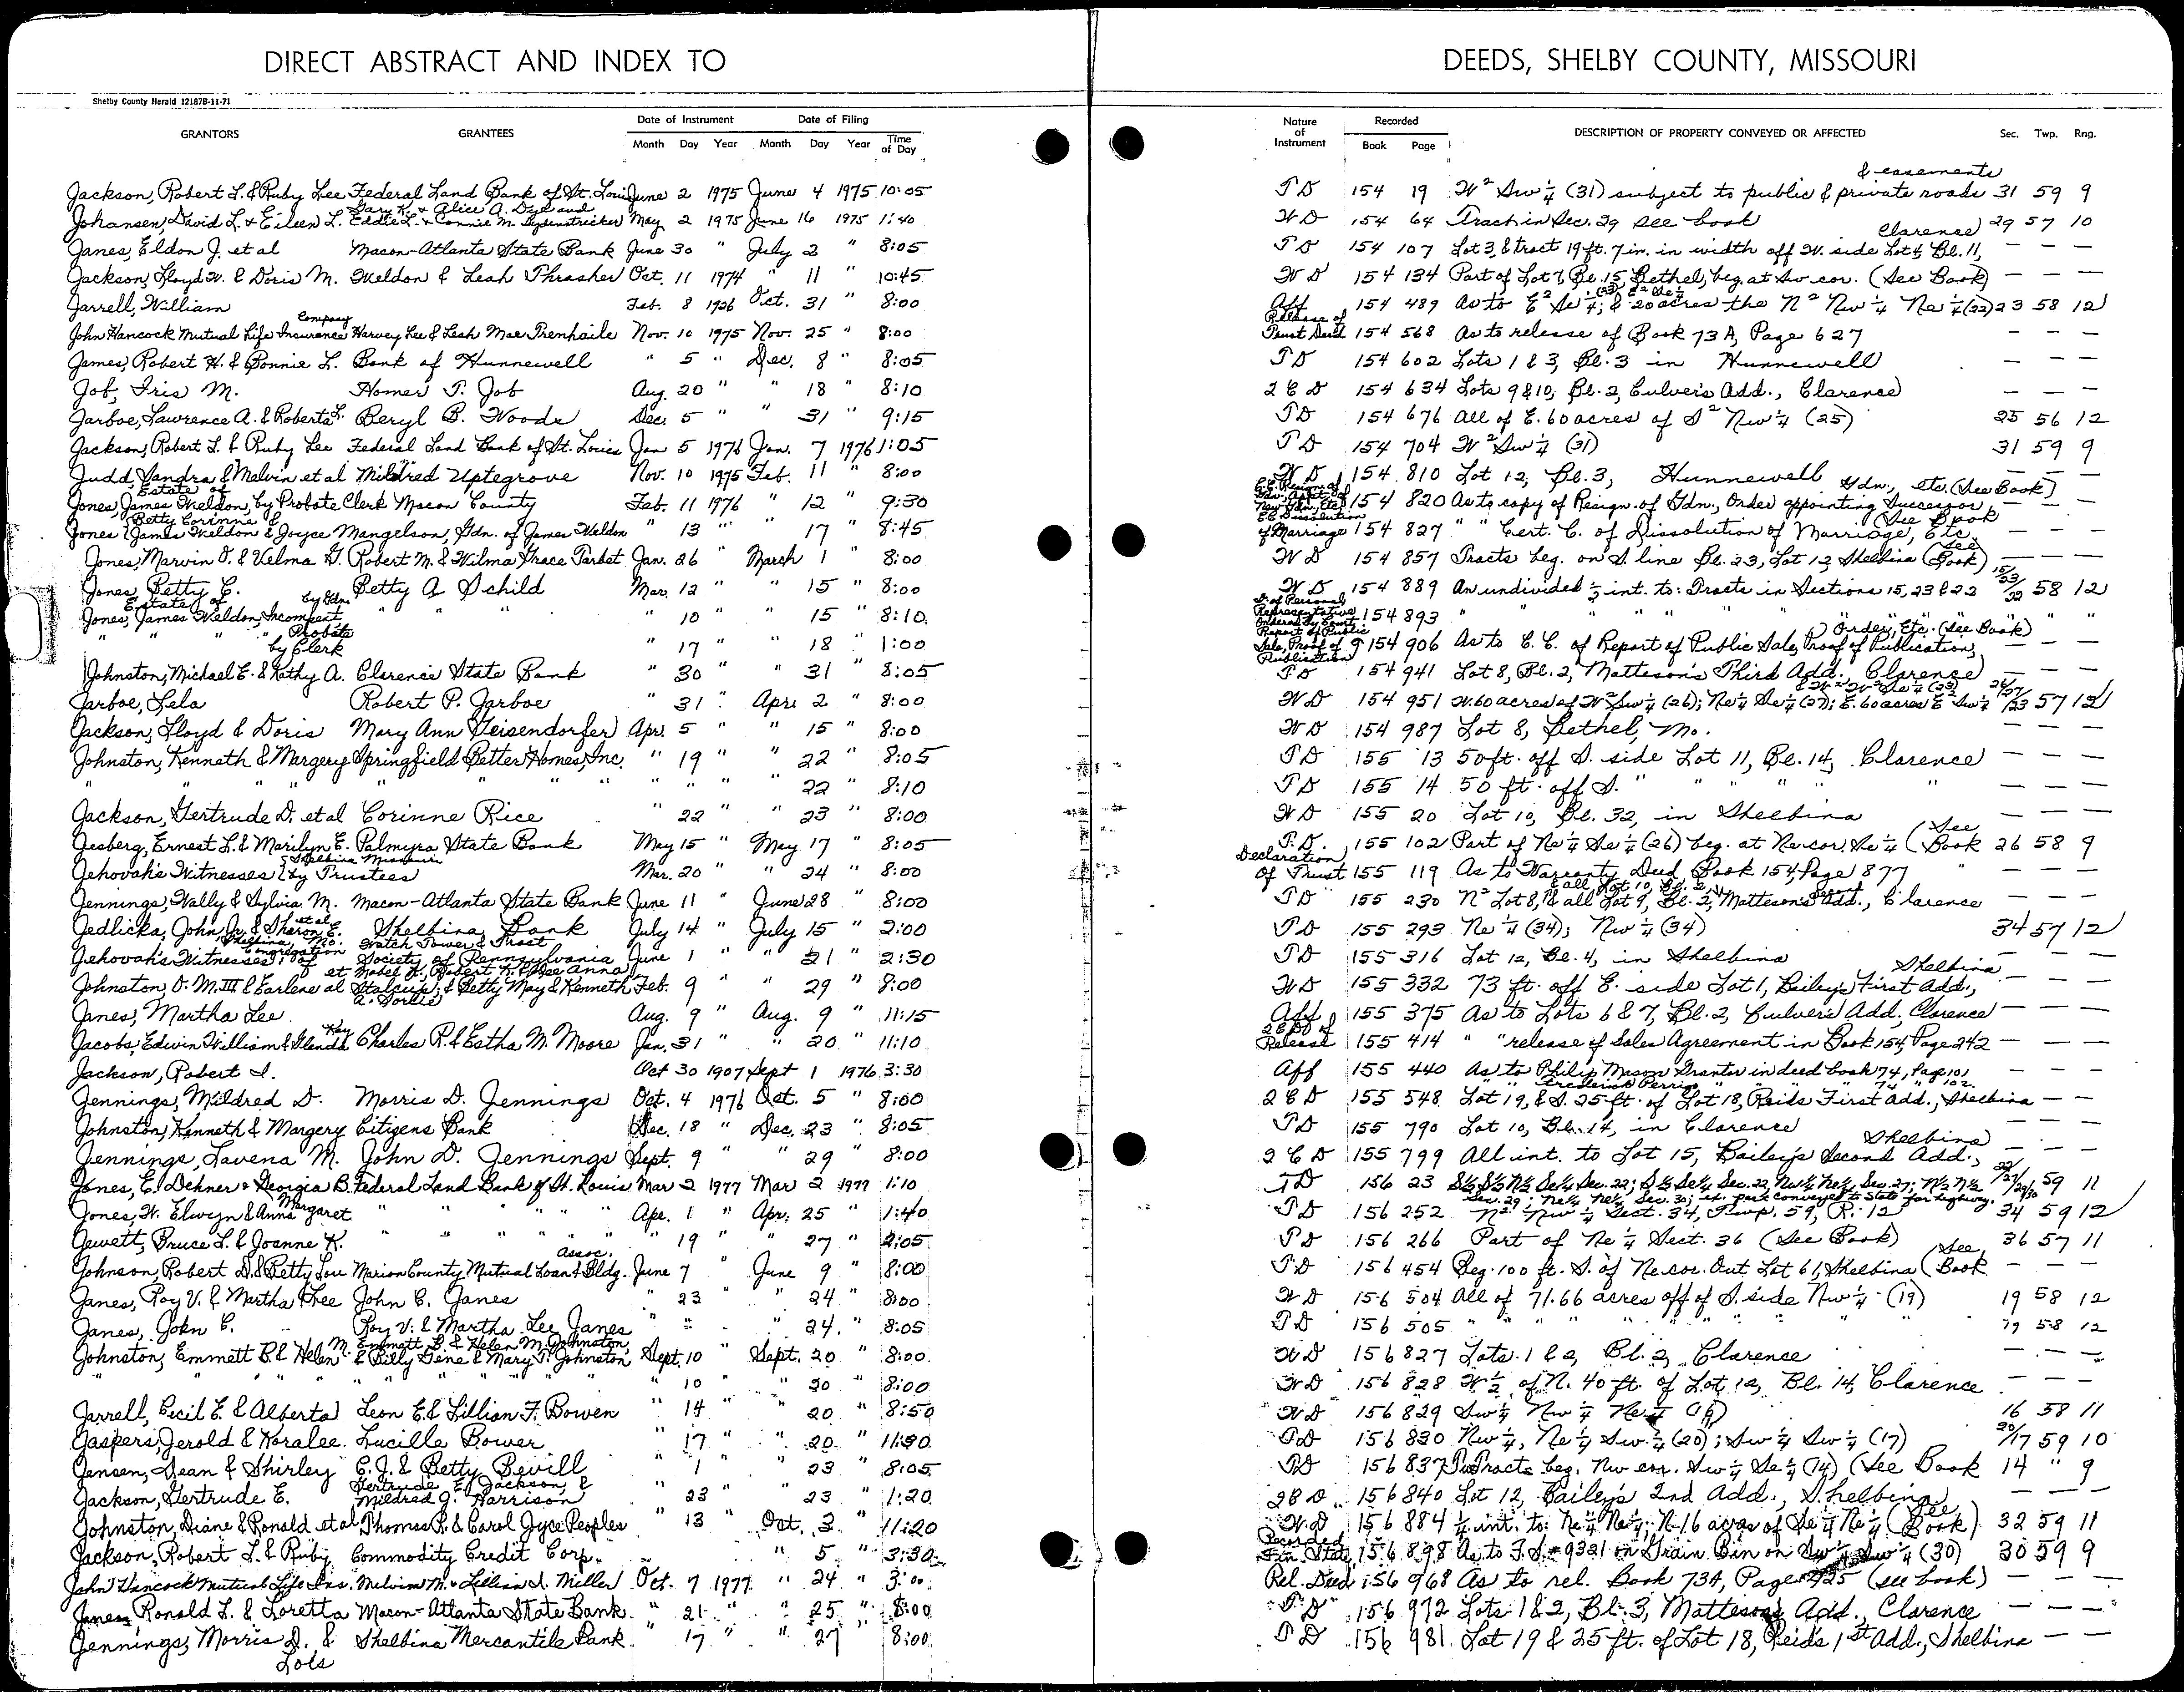 DIRECT ABSTRACT AND INDEX TO
DEEDS, SHELBY COUNTY, MISSOURI
Shelby County Herald 12187B-11-71
GRANTORS GRANTEES Date of Instrument Month Day Year Date of Filing Month Day Year Time of Day
Nature of Instrument Recorded Book Page DESCRIPTION OF PROPERTY CONVEYED OR AFFECTED Sec. Twp. Rng.
Jackson, Robert L. & Ruby Lee Federal Land Bank of St. Louis June 2 1975 June 4 1975 10:05 TD 154 19 W² Sw ¼ (31) subject to public & private roads & easements 31 59 9
Johansen, David L. & Eileen L. Gary K. & Alice A. Dye and Eddie L. & Connie M. May 2 1975 June 16 1975 1:40 WD 154 64 Tract in Sec. 29 see book 29 57 10
Janes, Eldon J. et al Macon-Atlanta State Bank June 30 " July 2 " 8:05 TD 154 107 Lot 3, & tract 19 ft. 7 in. in width off W. side Lot 4, Bl. 11, Clarence — — —
Jackson, Lloyd W. & Doris M. Weldon & Leah Thrasher Oct. 11 1974 " 11 " 10:45 WD 154 134 Part of Lot 7, Bl. 15, Bethel, beg. at Sw cor. (See Book) — — —
Jarrell, William Feb. 8 1926 Oct. 31 " 8:00 Aff 154 489 As to E² Se ¼; & 20 acres the N² Nw ¼ Ne ¼ (22) 23 58 12
John Hancock Mutual Life Insurance Company Harvey Lee & Leah Mae Trenhaile Nov. 10 1975 Nov. 25 " 8:00 Release of Trust Deed 154 568 As to release of Book 73A, Page 627 — — —
James, Robert H. & Bonnie L. Bank of Hunnewell " 5 " Dec. 8 " 8:05 TD 154 602 Lots 1 & 3, Bl. 3 in Hunnewell — — —
Job, Iris M. Homer T. Job Aug. 20 " " 18 " 8:10 2 C D 154 634 Lots 9 & 10, Bl. 2, Culver's Add., Clarence — — —
Jarboe, Lawrence A. & Roberta L. Beryl B. Woods Dec. 5 " " 31 " 9:15 TD 154 676 All of E. 60 acres of S² Nw ¼ (25) 25 56 12
Jackson, Robert L. & Ruby Lee Federal Land Bank of St. Louis Jan 5 1976 Jan. 7 1976 1:05 TD 154 704 W² Sw ¼ (31) 31 59 9
Judd, Sandra & Melvin et al Mildred Uptegrove Nov. 10 1975 Feb. 11 " 8:00 WD 154 810 Lot 12, Bl. 3, Hunnewell — — —
Jones, James Weldon, Estate of by Probate Clerk Macon County Feb. 11 1976 " 12 " 9:30 154 820 As to copy of Resign. of Gdn., Order appointing Successor Gdn., etc. (See Book) —
Jones, Betty Corinne & James Weldon & Joyce Mangelson, Gdn. of James Weldon " 13 " " 17 " 8:45 C.C. Dissolution of Marriage 154 827 " " Cert. C. of Dissolution of Marriage, Etc. (See Book — — —
Jones, Marvin O. & Velma G. Robert M. & Wilma Grace Tarbet Jan. 26 " March 1 " 8:00 WD 154 857 Tracts beg. on S. line Bl. 23, Lot 12, Shelbina (See Book) — — —
Jones, Betty C. Betty A Schild Mar. 12 " " 15 " 8:00 WD 154 889 An undivided ½ int. to: Tracts in Sections 15, 23 & 22 15/23/22 58 12
Jones, Estate of James Weldon, Incompent by Gdn. " " " 10 " 15 " 8:10 D. of Personal Representative Ordered by Court 154 893 " " " " " " " " "
" " " " by Probate Clerk " 17 " " 18 " 1:00 Report of Public Sale, Proof of Publication 154 906 As to C. C. of Report of Public Sale, Proof of Publication, Order, Etc. (See Book) — —
Johnston, Michael E. & Kathy A. Clarence State Bank " 30 " " 31 " 8:05 TD 154 941 Lot 8, Bl. 2, Matteson's Third Add. Clarence — — —
Jarboe, Lela Robert P. Jarboe " 31 " Apr. 2 " 8:00 WD 154 951 W. 60 acres of W² Sw ¼ (26); Ne ¼ Se ¼ (27); E. 60 acres E² Sw ¼ & W² W² Se ¼ (23) 26/27/23 57 12
Jackson, Lloyd & Doris Mary Ann Geisendorfer Apr. 5 " " 15 " 8:00 WD 154 987 Lot 8, Bethel, Mo. — — —
Johnston, Kenneth & Margery Springfield Better Homes, Inc. " 19 " " 22 " 8:05 TD 155 13 50 ft. off S. side Lot 11, Bl. 14, Clarence — — —
" " " " " " " " " " 22 " 8:10 TD 155 14 50 ft. off S. " " " " " — — —
Jackson, Gertrude D. et al Corinne Rice " 22 " " 23 " 8:00 WD 155 20 Lot 10, Bl. 32, in Shelbina — — —
Jesberg, Ernest L. & Marilyn E. Palmyra State Bank May 15 " May 17 " 8:05 T.D. 155 102 Part of Ne ¼ Se ¼ (26) beg. at Ne cor. Se ¼ (See Book 26 58 9
Jehovah's Witnesses, Shelbina Missouri by Trustees Mar. 20 " " 24 " 8:00 Declaration of Trust 155 119 As to Warranty Deed, Book 154, Page 877 — — —
Jennings, Wally & Sylvia M. Macon-Atlanta State Bank June 11 " June 28 " 8:00 TD 155 230 N² Lot 8, & all Lot 9, & all Lot 10, Bl. 2, Matteson's Second Add., Clarence — — —
Jedlicka, John Jr. & Sharon E. et al Shelbina Bank July 14 " July 15 " 2:00 TD 155 293 Ne ¼ (34); Nw ¼ (34) 34 57 12
Jehovah's Witnesses, Shelbina, Mo. Congregation of Watch Tower & Tract Society of Pennsylvania June 1 " " 21 " 2:30 TD 155 316 Lot 12, Bl. 4, in Shelbina — — —
Johnston, O. M. III & Earlene et al Mabel K., Robert K. & Dee Anna Stalcup; & Betty May & Kenneth A. Sorlie Feb. 9 " " 29 " 8:00 WD 155 332 73 ft. off E. side Lot 1, Bailey's First Add., Shelbina — —
Janes, Martha Lee Aug. 9 " Aug. 9 " 11:15 Aff 155 375 As to Lots 6 & 7, Bl. 2, Culver's Add., Clarence — — —
Jacobs, Edwin William & Glenda Kay Charles R. & Estha M. Moore Jan. 31 " " 20 " 11:10 2 C D of Release 155 414 " " release of Sales Agreement in Book 154, Page 242 — — —
Jackson, Robert I. Oct 30 1907 Sept 1 1976 3:30 Aff 155 440 As to Philip Mason Grantor in deed book 74, Page 101 — — —
" " Frederick Perrigo " " " 74 " 102
Jennings, Mildred D. Morris D. Jennings Oct. 4 1976 Oct. 5 " 8:00 2 C D 155 548 Lot 19, & S. 25 ft. of Lot 18, Reids First Add., Shelbina — —
Johnston, Kenneth & Margery Citizens Bank Dec. 18 " Dec. 23 " 8:05 TD 155 790 Lot 10, Bl. 14, in Clarence — — —
Jennings, Lavena M. John D. Jennings Sept. 9 " " 29 " 8:00 2 C D 155 799 All int. to Lot 15, Bailey's Second Add., Shelbina — — —
Jones, E. Dehner & Georgia B. Federal Land Bank of St. Louis Mar 2 1977 Mar 2 1977 1:10 TD 156 23 S½ S½ N½ Se¼ Sec. 22; S½ Se¼ Sec. 22, Nw¼ Ne¼, Sec. 27; N½ N½ Sec. 29; Ne¼ Ne¼ Sec. 30; ex. park conveyed to State for highway. 59 11
Jones, W. Elwyn & Anna Margaret " " " " " Apr. 1 " Apr. 25 " 1:40 TD 156 252 N² Nw ¼ Sect. 34, Twp. 59, R. 12 34 59 12
Jewett, Bruce L. & Joanne K. " " " " " " 19 " " 27 " 2:05 TD 156 266 Part of Ne ¼ Sect. 36 (See Book) 36 57 11
Johnson, Robert D. & Betty Lou Marion County Mutual Loan & Bldg. Assoc. June 7 " June 9 " 8:00 TD 156 454 Beg. 100 ft. S. of Ne cor. Out Lot 61, Shelbina (See Book — — —
Janes, Roy V. & Martha Lee John C. Janes " 23 " " 24 " 8:00 WD 156 504 All of 71.66 acres off of S. side Nw ¼ (19) 19 58 12
Janes, John C. Roy V. & Martha Lee Janes " " " 24 " 8:05 TD 156 505 " " " " " " " " 19 58 12
Johnston, Emmett B. & Helen M. Emmett B. & Helen M. Johnston, & Billy Gene & Mary T. Johnston Sept. 10 " Sept. 20 " 8:00 WD 156 827 Lots 1 & 2, Bl. 2, Clarence — — —
" " " " " " " " " 10 " 20 " 8:00 WD 156 828 W ½ of N. 40 ft. of Lot 12, Bl. 14, Clarence — — —
Jarrell, Cecil E. & Alberta Leon E. & Lillian F. Bowen " 14 " " 20 " 8:50 WD 156 829 Sw ¼ Nw ¼ Ne ¼ (16) 16 58 11
Jaspers, Jerold & Noralee Lucille Bower " 17 " " 20 " 11:30 TD 156 830 Nw ¼, Ne ¼ Sw ¼ (20); Sw ¼ Sw ¼ (17) 20/17 59 10
Jensen, Dean & Shirley C. J. & Betty Bevill " 1 " 23 " 8:05 TD 156 837 Tracts beg. Nw cor. Sw ¼ Se ¼ (14) (See Book 14 " 9
Jackson, Gertrude E. Gertrude E. Jackson, & Mildred J. Harrison " 23 " " 23 " 1:20 2 C D 156 840 Lot 12, Bailey's 2nd Add., Shelbina — — —
Johnston, Diane & Ronald et al Thomas R. & Carol Joyce Peoples " 13 " Oct. 3 " 11:20 WD 156 884 ¼ int. to: Ne ¼ Ne ¼; N. 16 acres of Se ¼ Ne ¼ (See Book) 32 59 11
Jackson, Robert L. & Ruby Commodity Credit Corp. " 5 " 3:30 Fin. State. 156 898 As to F.S. # 9321 on Grain Bin on Sw ¼ Sw ¼ (30) 30 59 9
John Hancock Mutual Life Ins. Melvin M. & Lillian I. Miller Oct. 7 1977 " 24 " 3:00 Rel. Deed 156 968 As to rel. Book 73A, Page (see book) — — —
Janes Ronald L. & Loretta Macon-Atlanta State Bank " 21 " " 25 " 8:00 TD 156 972 Lots 1 & 2, Bl. 3, Matteson's Add., Clarence — — —
Jennings, Morris D. & Lois Shelbina Mercantile Bank " 17 " " 27 8:00 TD 156 981 Lot 19 & 25 ft. of Lot 18, Reid's 1st Add., Shelbina — —